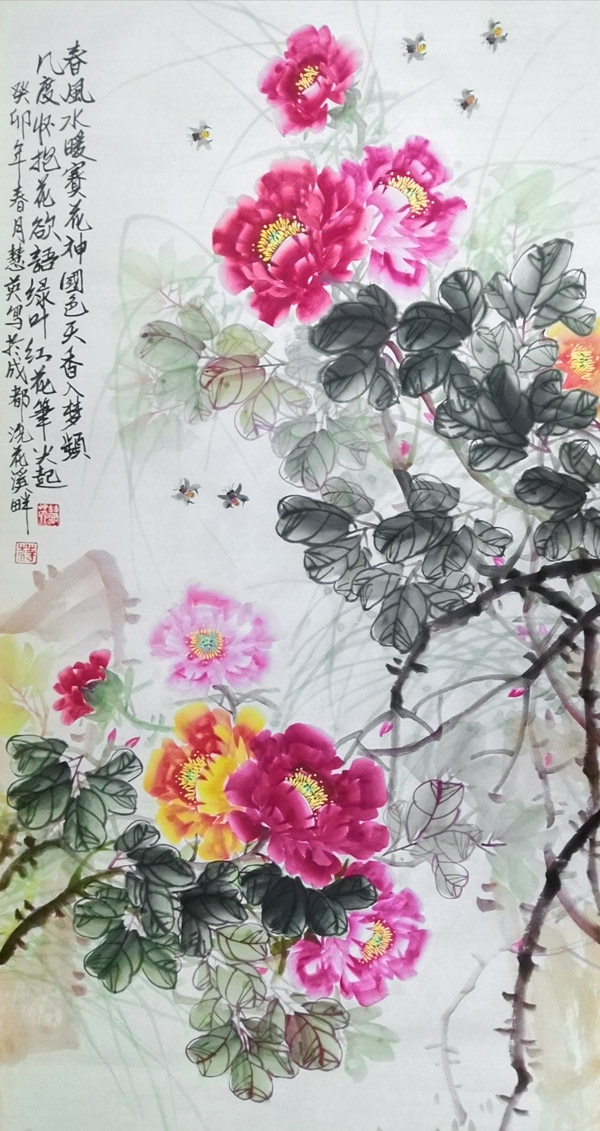 春風水暖賽花神國色天香入梦頻
几度怀抱花欲語绿叶红花筆尖起
癸卯年春月慧英写於成都浣花溪畔